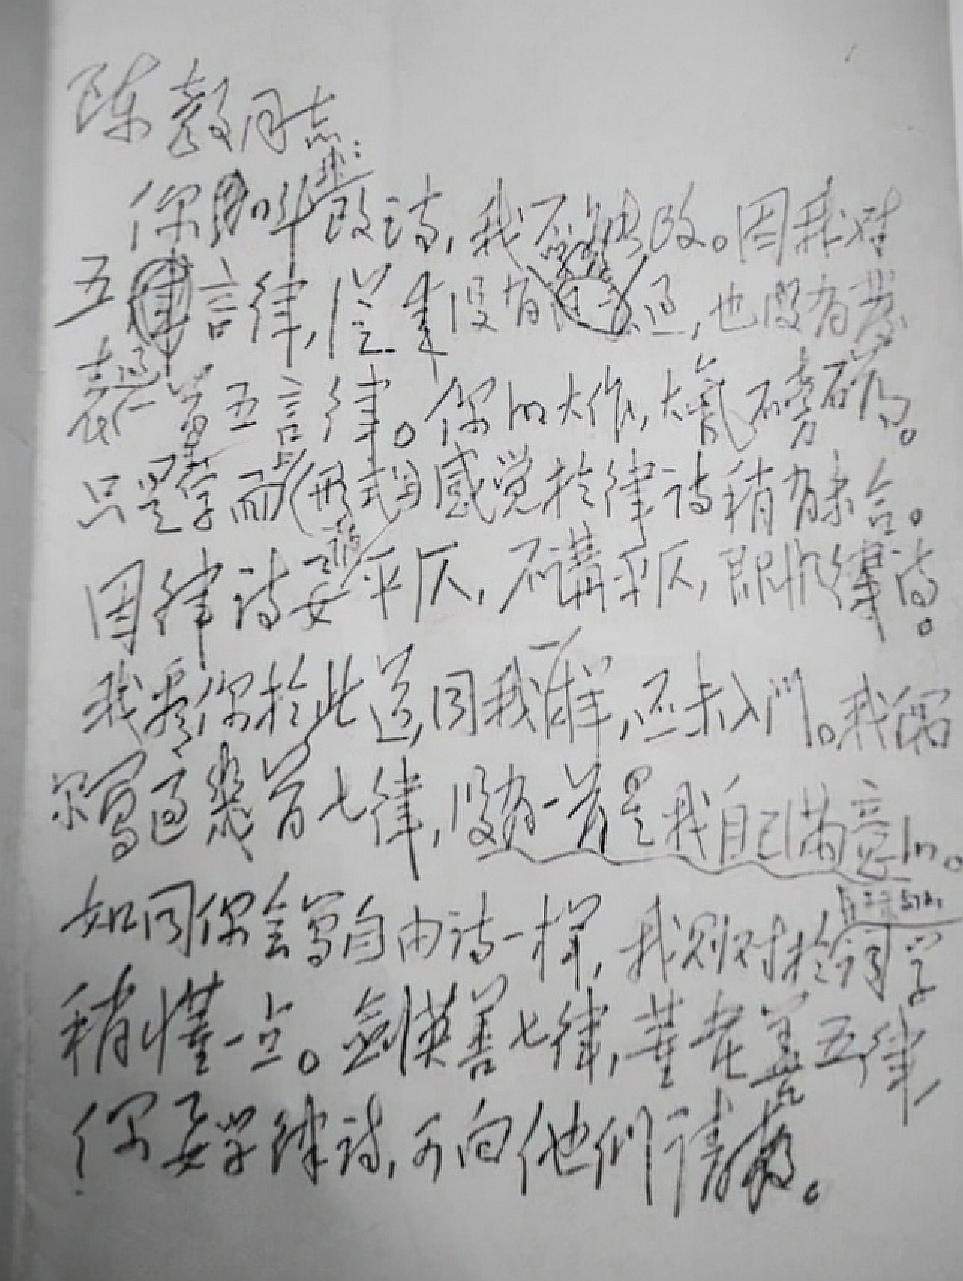 陈毅同志:
你叫我改诗,我不能改。因我对
五言律,從来没有学習过,也没有發
表过一首五言律。你的大作,大氣磅礴。
只是在字面上(形式上)感觉於律诗稍有未合。
因律诗要讲平仄,不講平仄,即非律诗。
我看你於此道,同我一样,还未入門。我偶
尔写过幾首七律,没有一首是我自己满意的。
如同你会写自由诗一样,我则对於長短句的词学
稍懂一点。劍英善七律,董老善五律,
你要学律诗,可向他们请教。